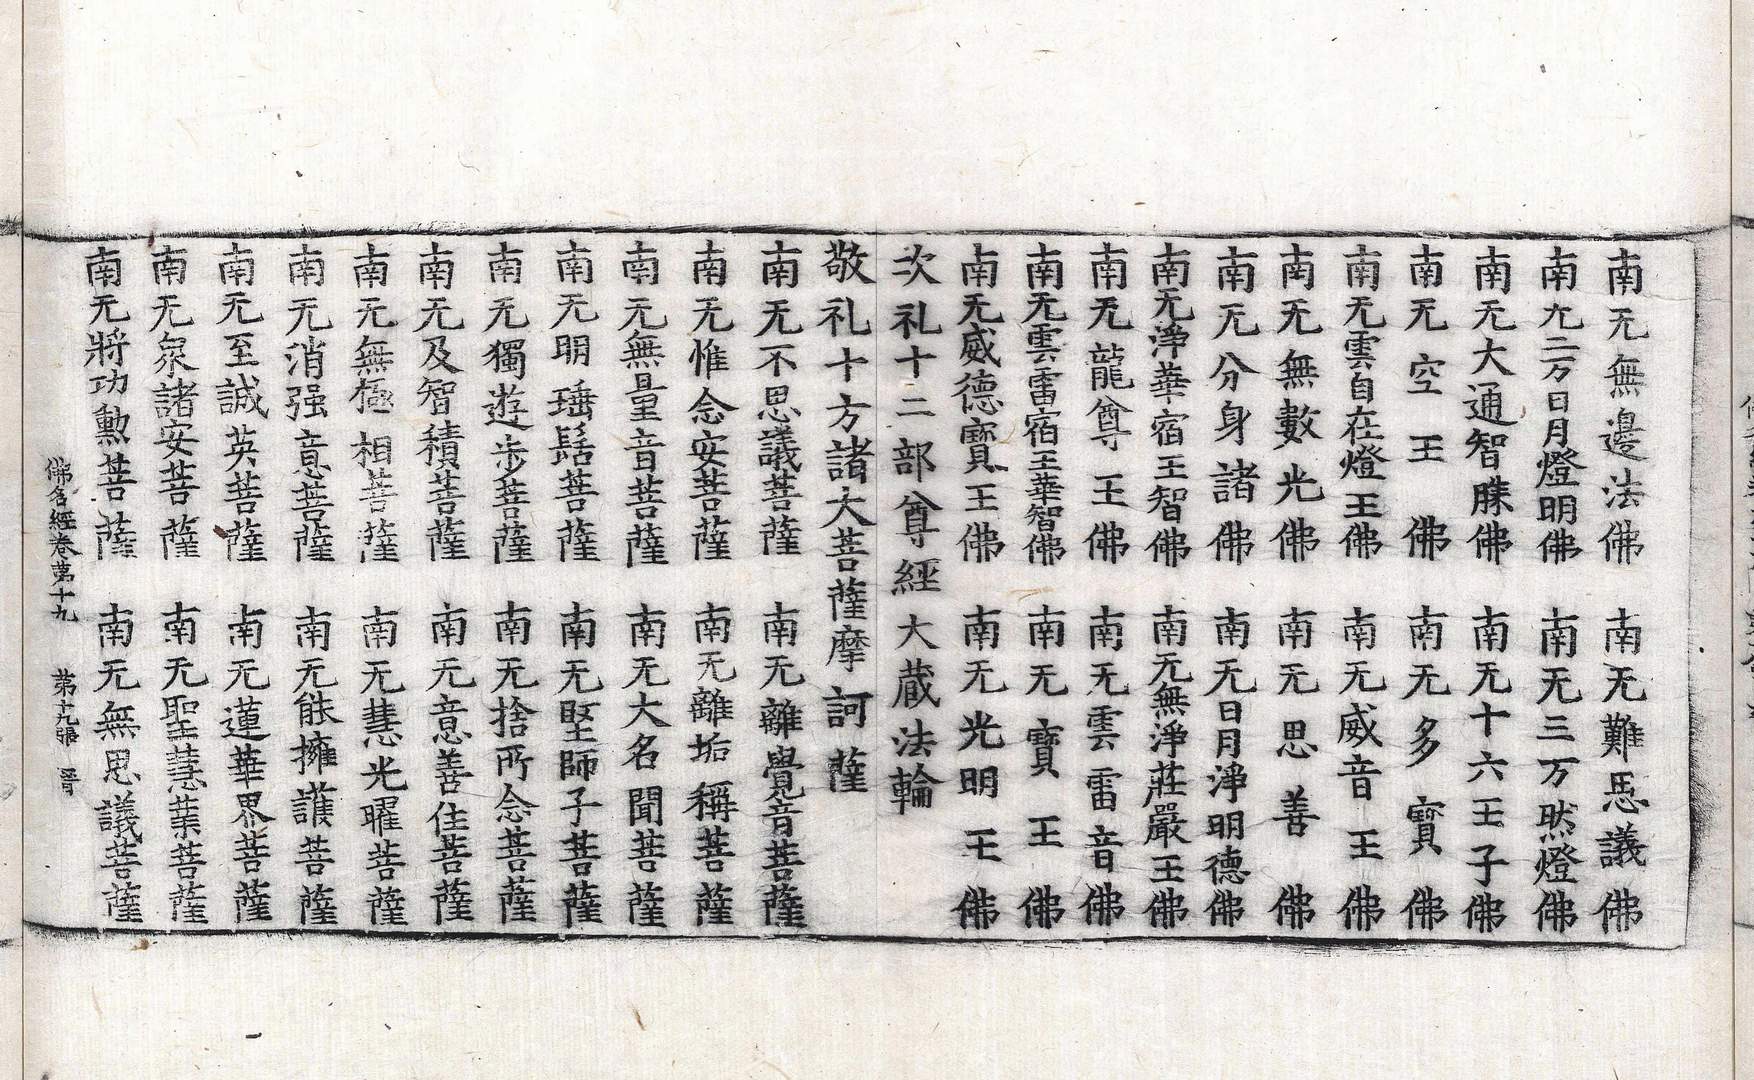 南无無邊法佛 南无難思議佛
南无二万日月燈明佛 南无三万然燈佛
南无大通智勝佛 南无十六王子佛
南无空王佛 南无多寳佛
南无雲自在燈王佛 南无威音王佛
南无無數光佛 南无思善佛
南无分身諸佛 南无日月淨明德佛
南无淨華宿王智佛 南无無淨莊嚴王佛
南无龍尊王佛 南无雲雷音佛
南无雲雷宿王華智佛 南无寳王佛
南无威德寳王佛 南无光明王佛
次礼十二部尊經大藏法輪
敬礼十方諸大菩薩摩訶薩
南无不思議菩薩 南无離覺音菩薩
南无惟念安菩薩 南无離垢稱菩薩
南无無量音菩薩 南无大名聞菩薩
南无明髻菩薩 南无堅師子菩薩
南无獨遊步菩薩 南无捨所念菩薩
南无及智積菩薩 南无意善住菩薩
南无無極相菩薩 南无慧光曜菩薩
南无消强意菩薩 南无能擁護菩薩
南无至誠英菩薩 南无蓮華界菩薩
南无衆諸安菩薩 南无聖慧業菩薩
南无將功勲菩薩 南无無思議菩薩
佛名經卷第十九 第十九張